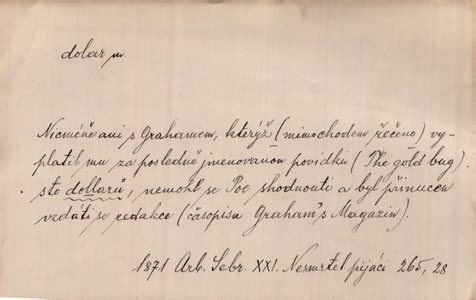 dolar m.
Nicméně ani s Grahamem, kterýž (mimochodem řečeno) vy-
platil mu za posledně jmenovanou povídku (The gold bug)
sto dollarů, nemohl se Poe shodnouti a byl přinucen
vzdáti se redakce (časopisu Graham's Magazin).
1871 Arb. Sebr. XXI. Nesmrtel. pijáci 265, 28